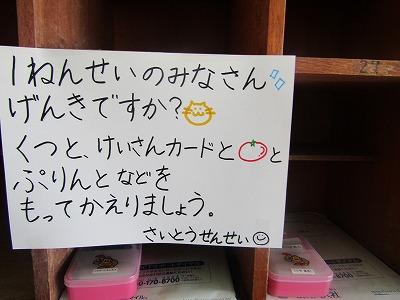 1ねんせいのみなさん
げんきですか?
くつと、けいさんカードと と
ぷりんとなどを
もってかえりましょう。
さいとうせんせい
27
170-8700